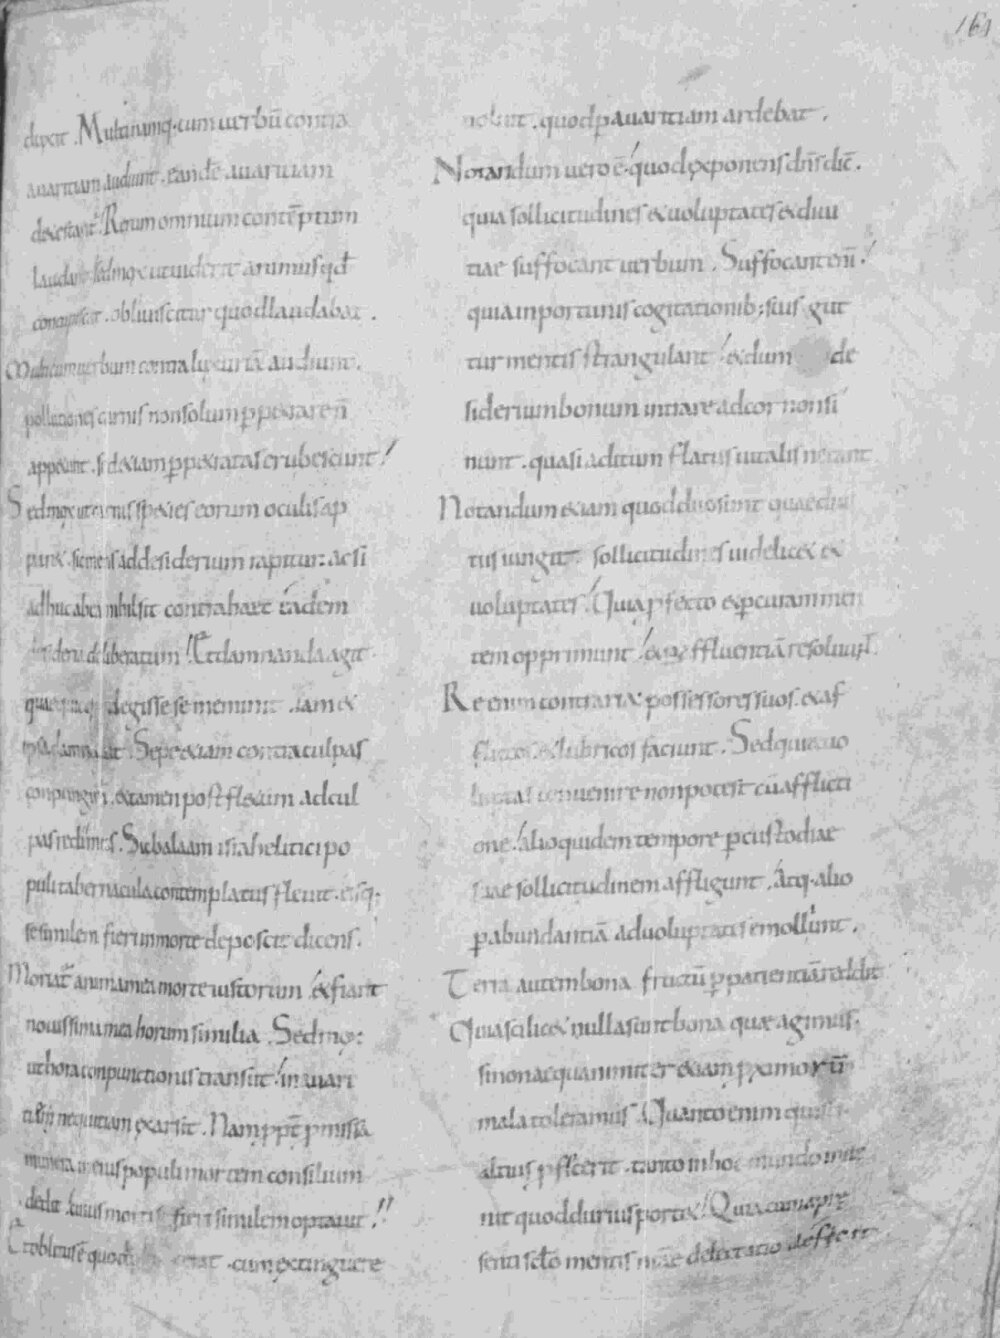 164
depcat. Multi namq; cum uerbū contra
auaritiam audiunt. eandē auaritiam
detestant̄. Rerum omnium contēptum
laudant. sed mox ut uiderit animus qđ
concupiscat. obliuiscitur quod laudabat.
Multi cum uerbum contra luxuriā audiunt.
pollutiones carnis non solum ꝑpetrare n̄
appetunt. sed etiam ꝑpetratas erubescunt!
Sed mox ut carnis species eorum oculis ap
paret. sic mens ad desiderium rapitur. ac si
adhuc ab ea nihil sit contra haec eadem
desideria deliberatum! Et damnanda agit
quae egisse se meminit. iam et
ipse damnauit. Sepe etiam contra culpas
conpungimur. et tamen post fletum ad cul
pas redimus. Sic balaam israhelitici po
puli tabernacula contemplatus fleuit. eisq;
se similem fieri in morte deposcit dicens.
Moriat̄ anima mea morte iustorum. et fiant
nouissima mea horum similia. Sed mox
ut hora conpunctionis transiit. in auari
tiae nequitiam exarsit. Nam ꝓpt̄ ꝓmissa
munera in eius populi mortem consilium
dedit. cuius mortis fieri similem optauit!
Et oblitus ē quod. cum extinguere
noluit. quod ꝑ auaritiam ardebat.
Notandum uero ē. quod exponens dn̄s dic̄.
quia sollicitudines et uoluptates et diui
tiae suffocant uerbum. Suffocant eni̅!
quia inportunis cogitationib; suis gut
tur mentis strangulant. et dum de
siderium bonum intrare ad cor non si
nunt. quasi aditum flatus uitalis necant
Notandum etiam quod duo sunt quae diui
tiis iungit. sollicitudines uidelicet et
uoluptates. Quia ꝓfecto et ꝑ curam men
tem opprimunt. et ꝑ affluentiā resoluunt.
Re enim contraria et possessores suos et af
flictos et lubricos faciunt. Sed quia uo
luptas conuenire non potest cū afflicti
one. alio quidem tempore ꝑ custodiae
suae sollicitudinem affligunt. atq; alio
ꝑ abundantiā ad uoluptates emolliunt.
Terra autem bona fructū ꝑ patientiā reddit
Quia scilicet nulla sunt bona quae agimus.
si non aequanimiter etiam ꝓximorum
mala toleramus. Quanto enim quis
altius ꝓfecerit. tanto in hoc mundo inue
nit quod durius portet! Quia cum a prae
senti sc̄lo mentis nr̄ae delectatio deficit